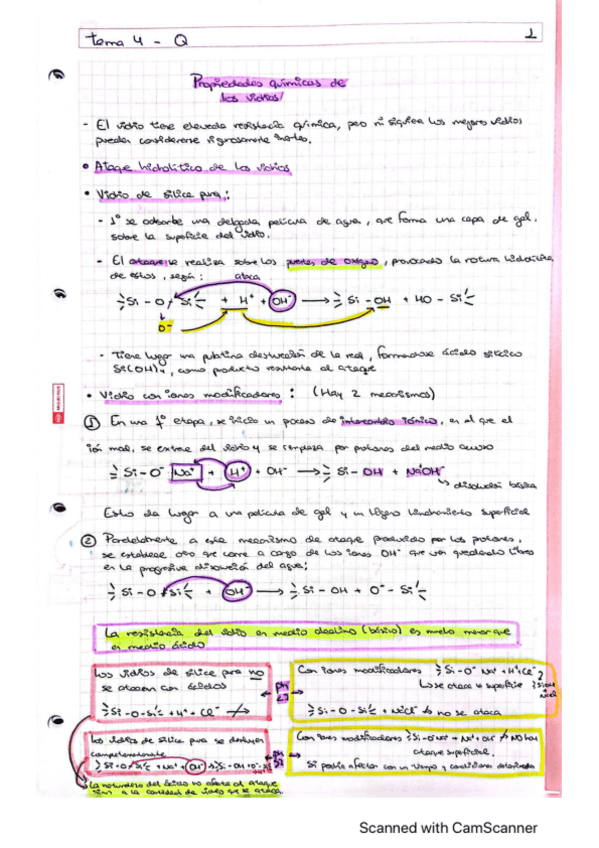 tema 4 - Q
1
Propiedades químicas de
los vidrios
- El vidrio tiene elevada resistencia química, pero ni siquiera los mejores vidrios
pueden considerarse rigurosamente inertes.
• Ataque hidrolítico de los vidrios
• Vidrio de sílice pura:
- 1º se adsorbe una delgada película de agua, que forma una capa de gel.
sobre la superficie del vidrio.
- El ataque se realiza sobre los puentes de oxígeno, provocando la rotura hidrolítica
de estos, según: ataca
Si - O Si + H⁺ + OH⁻ → Si - OH + HO - Si
O⁻
- Tiene lugar una paulatina destrucción de la red, formandose ácido silícico
Si(OH)₄, como producto resultante al ataque
• Vidrio con iones modificadores: (Hay 2 mecanismos)
① En una 1º etapa, se inicia un proceso de intercambio iónico, en el que el
ión mod, se extrae del vidrio y se remplaza por protones del medio acuoso
Si - O⁻ Na⁺ + H⁺ + OH⁻ → Si - OH + NaOH
disolución básica
Esto da lugar a una película de gel y un ligero hinchamiento superficial
② Paralelamente a este mecanismo de ataque producido por los protones,
se establece otro que corre a cargo de los iones OH⁻ que van quedando libres
en la progresiva disolución del agua;
Si - O Si + OH⁻ → Si - OH + O⁻ - Si
La resistencia del vidrio en medio alcalino (básico) es mucho menor que
en medio ácido
Los vidrios de sílice pura no
se atacan con ácidos
Si - O - Si + H⁺ + Cl⁻
pH
<7
Con iones modificadores Si - O⁻ Na⁺ + H⁺Cl⁻
se ataca superficie SiOH
NaCl
Si - O - Si + NaCl no se ataca
Los vidrios de sílice pura se destruyen
Si - O Si + Na⁺ + OH⁻
pH
Con iones modificadores Si-O⁻Na⁺ + Na⁺ OH⁻ NO hay
ataque superficial.
Si podría afectar con un tiempo y condiciones
La naturaleza del ácido no afecta al ataque
a la cantidad de vidrio que se ataca.
Scanned with CamScanner